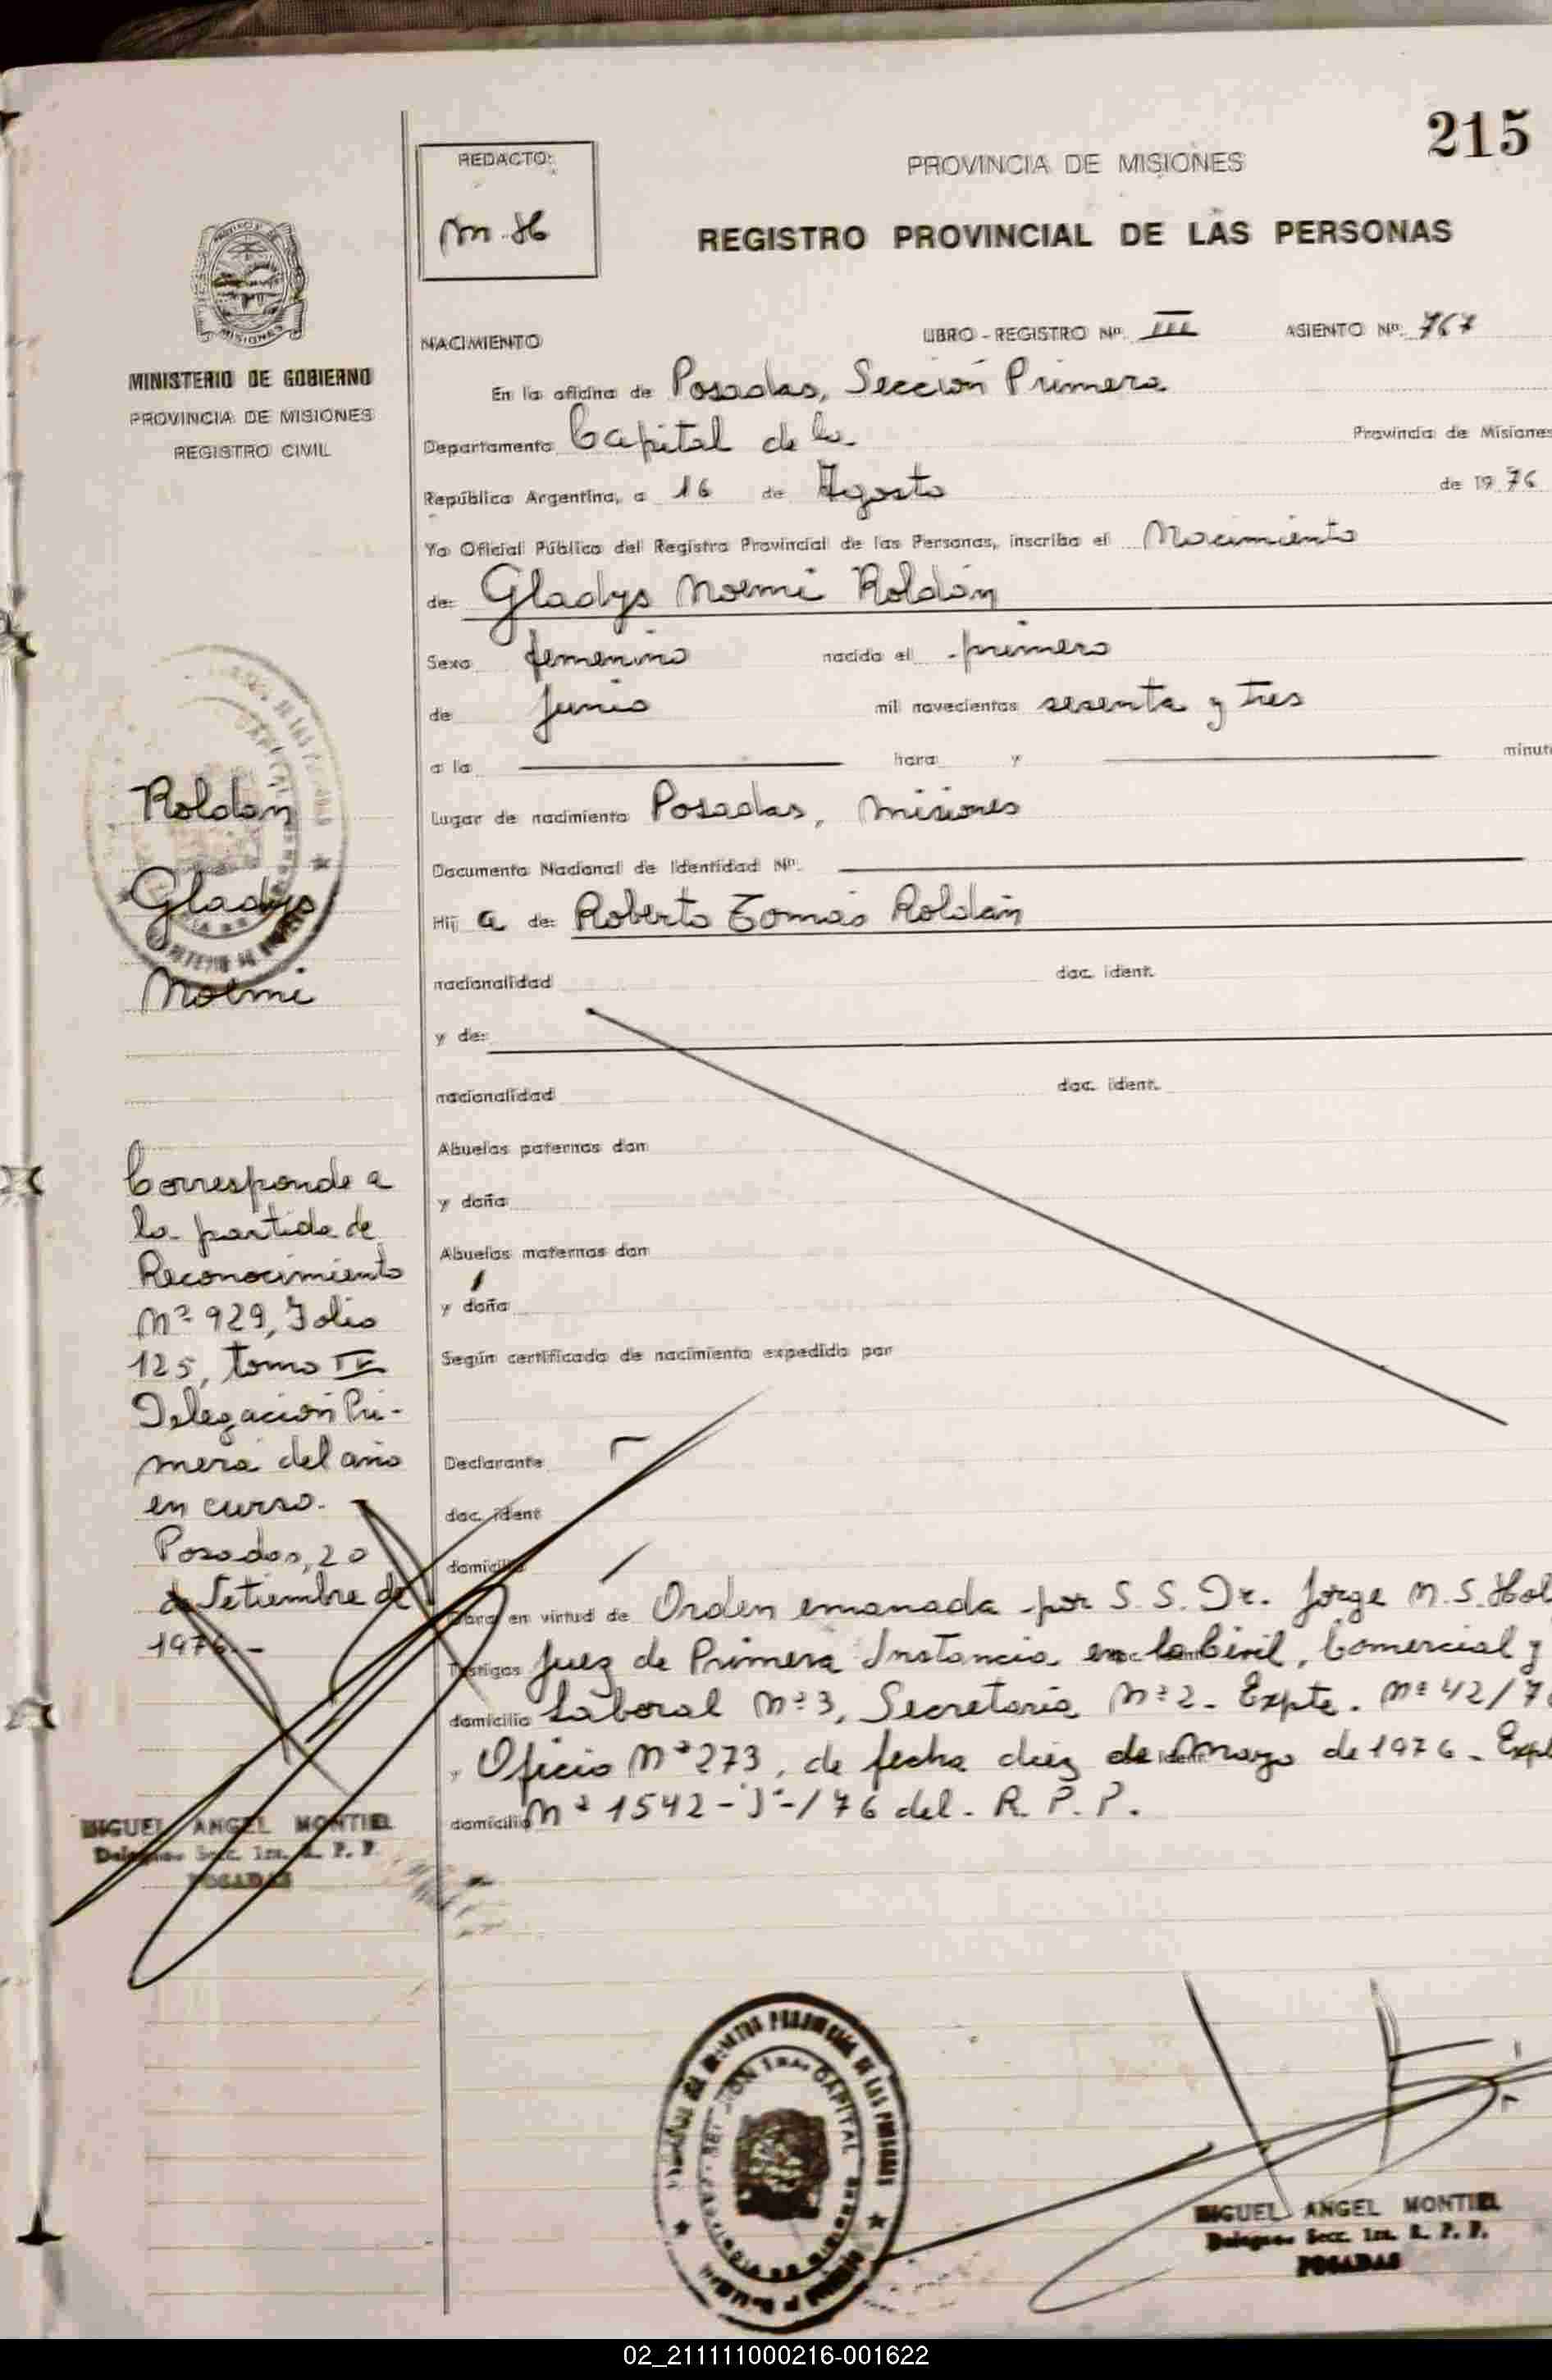 215
REDACTO:
M.H
PROVINCIA DE MISIONES
REGISTRO PROVINCIAL DE LAS PERSONAS
MISIONES
MINISTERIO DE GOBIERNO
PROVINCIA DE MISIONES
REGISTRO CIVIL
NACIMIENTO LIBRO - REGISTRO Nº. III ASIENTO Nº. 767
En la oficina de Posadas, Sección Primera
Departamento Capital de la Provincia de Misiones
República Argentina, a 16 de Agosto de 1976
Yo Oficial Público del Registro Provincial de las Personas, inscribo el Nacimiento
de: Gladys Noemi Roldán
Sexo femenino nacido el primero
de Junio mil novecientos sesenta y tres
a la hora y minut
Lugar de nacimiento Posadas, Misiones
Documento Nacional de Identidad Nº.
Hij a de: Roberto Tomás Roldán
nacionalidad doc. ident.
y de:
nacionalidad doc. ident.
Abuelos paternos don
y doña
Abuelos maternos don
y doña
Según certificado de nacimiento expedido por
Declarante
doc. ident
domicilio
Obra en virtud de Orden emanada por S. S. Dr. Jorge M. S.
Testigos Juez de Primera Instancia en lo Civil, Comercial y
domicilio Laboral Nº 3, Secretaria Nº 2. Expte. Nº 42/7
, Oficio Nº 273, de fecha diez de Mayo de 1976 - Exp
domicilio Nº 1542-J-/76 del. R. P. P.
Roldán
Gladys
Noemi
Corresponde a
la partida de
Reconocimiento
Nº 929, Folio
125, tomo IV
Delegación Pri-
mera del año
en curso.
Posadas, 20
de Setiembre de
1976.-
MIGUEL ANGEL MONTIEL
Secc. 1ra. R. P. P.
POSADAS
MIGUEL ANGEL MONTIEL
Secc. 1ra. R. P. P.
POSADAS
02_211111000216-001622